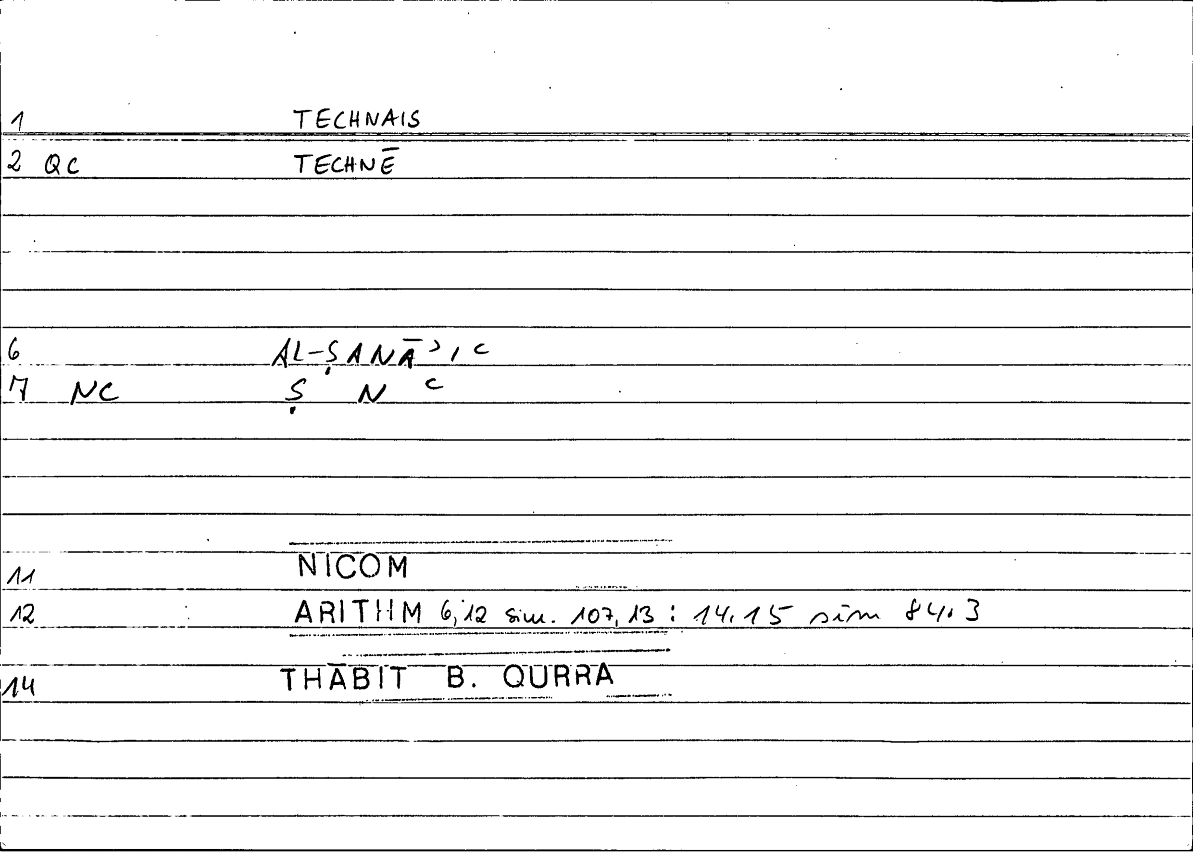 1 TECHNAIS
2 QC TECHNĒ
6 AL-ṢANĀʾIʿ
7 NC Ṣ N ʿ
11 NICOM
12 ARITHM 6,12 sim. 107,13 : 14.15 sim 84.3
14 THĀBIT B. QURRA